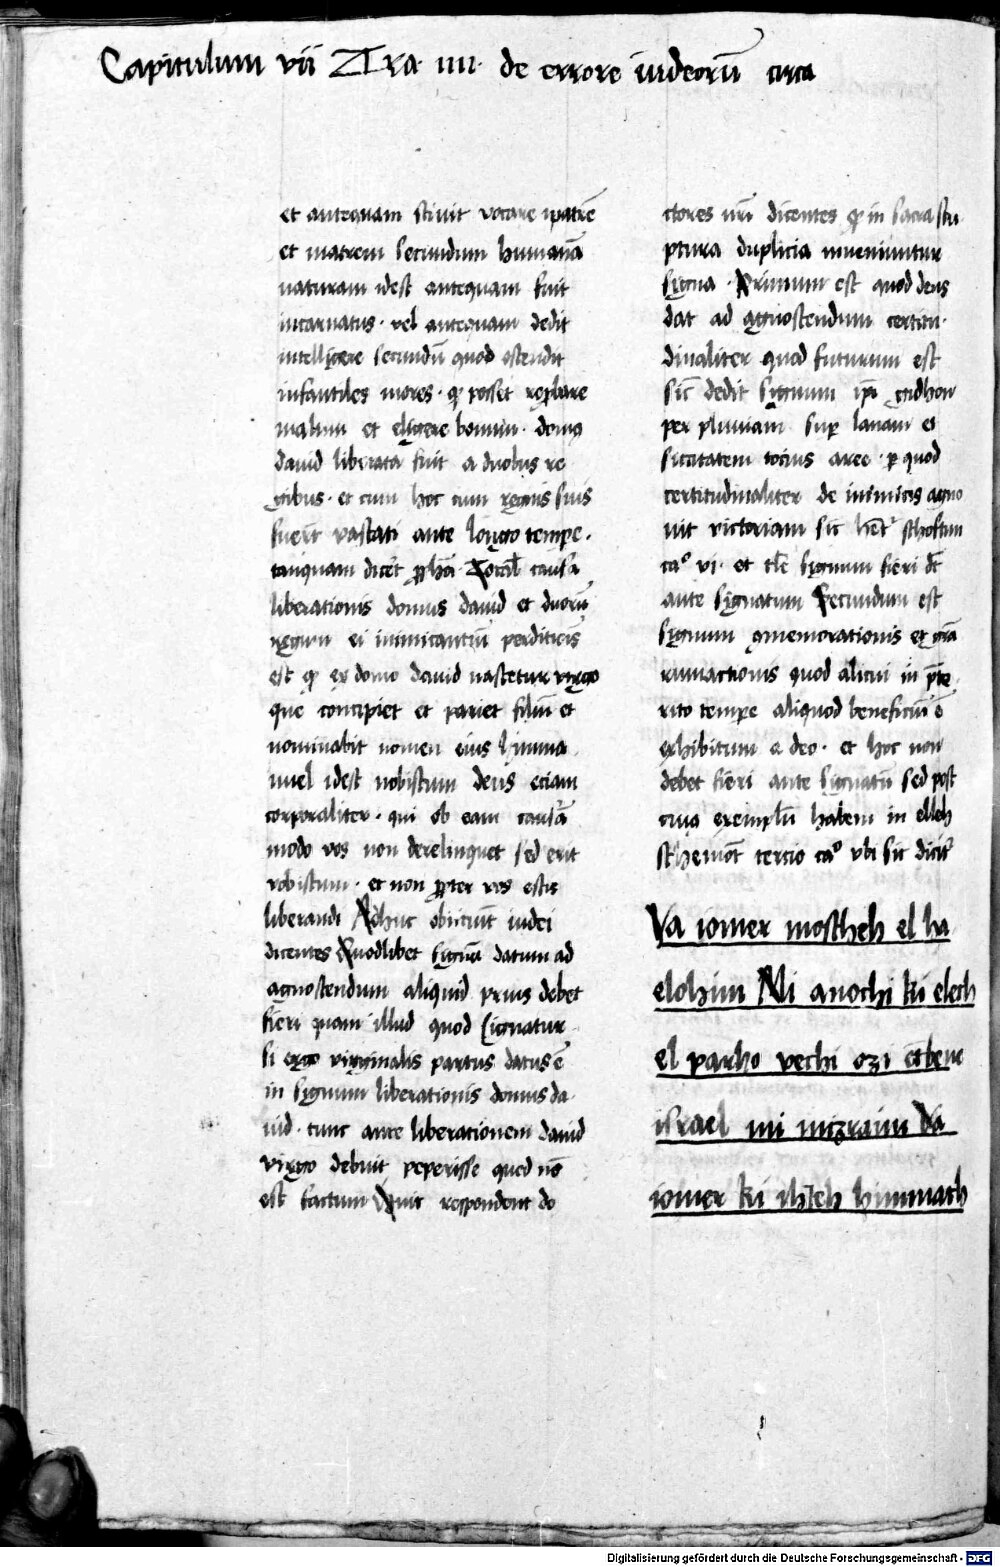 Capitulum vii Tra iiii de errore iudeorū circa
et antequam scivit vocare ipatrē
et matrem secundum humanā
naturam idest antequam fuit
incarnatus · vel antequam dedit
intelligere secundū quod ostendit
infantiles mores · ꝙ posset reprobare
malum et eligere bonum · domus
david liberata fuit a duobus re
gibus · et cum hoc cum regnis suis
fuerūt vastati ante longo tempe ·
tanquam diceret ꝓpheta Totalis causa
liberationis domus david et duorū
regum ei inimicantiū perditionis
est ꝙ ex domo david nascetur virgo
que concipiet et pariet filiū et
nominabit nomen eius himma
nuel idest nobiscum deus eciam
corporaliter · qui ob eam causam
modo vos non derelinquet sed erit
vobiscum · et non ꝓpter vos estis
liberandi Adhuc obiciunt iudei
dicentes Quodlibet signū datum ad
agnoscendum aliquid prius debet
fieri quam illud quod signatur
si ergo virginalis partus datus ē
in signum liberationis domus da
uid · tunc ante liberationem david
virgo debuit peperisse quod nō
est factum Huic respondent do
ctores nr̄i dicentes ꝙ in sacra scri
ptura duplicia inveniuntur
signa · Primum est quod deus
dat ad agnoscendum certitu
dinaliter quod futurum est
sic dedit signum ipī gidhon
per pluviam sup lanam et
siccitatem tocius aree · ꝑ quod
certitudinaliter de inimicis agno
vit victoriam sic hēt schoftim
caº vi · et tāle signum fieri dēt
ante signatum Secundum est
signum ɔmemorationis et grā
rumactionis quod alicui in prēte
rito tempe aliquod beneficiū ē
exhibitum a deo · et hoc non
debet fieri ante signatū sed post
cuius exemplū habem in elleh
schemot tercio caº vbi sic dicit
Va iomer moscheh el ha
elohim Mi anochi ki elech
el parho vechi ozi et bene
israel mi mizraim Va
iomer ki ihieh himmach
Digitalisierung gefördert durch die Deutsche Forschungsgemeinschaft - DFG